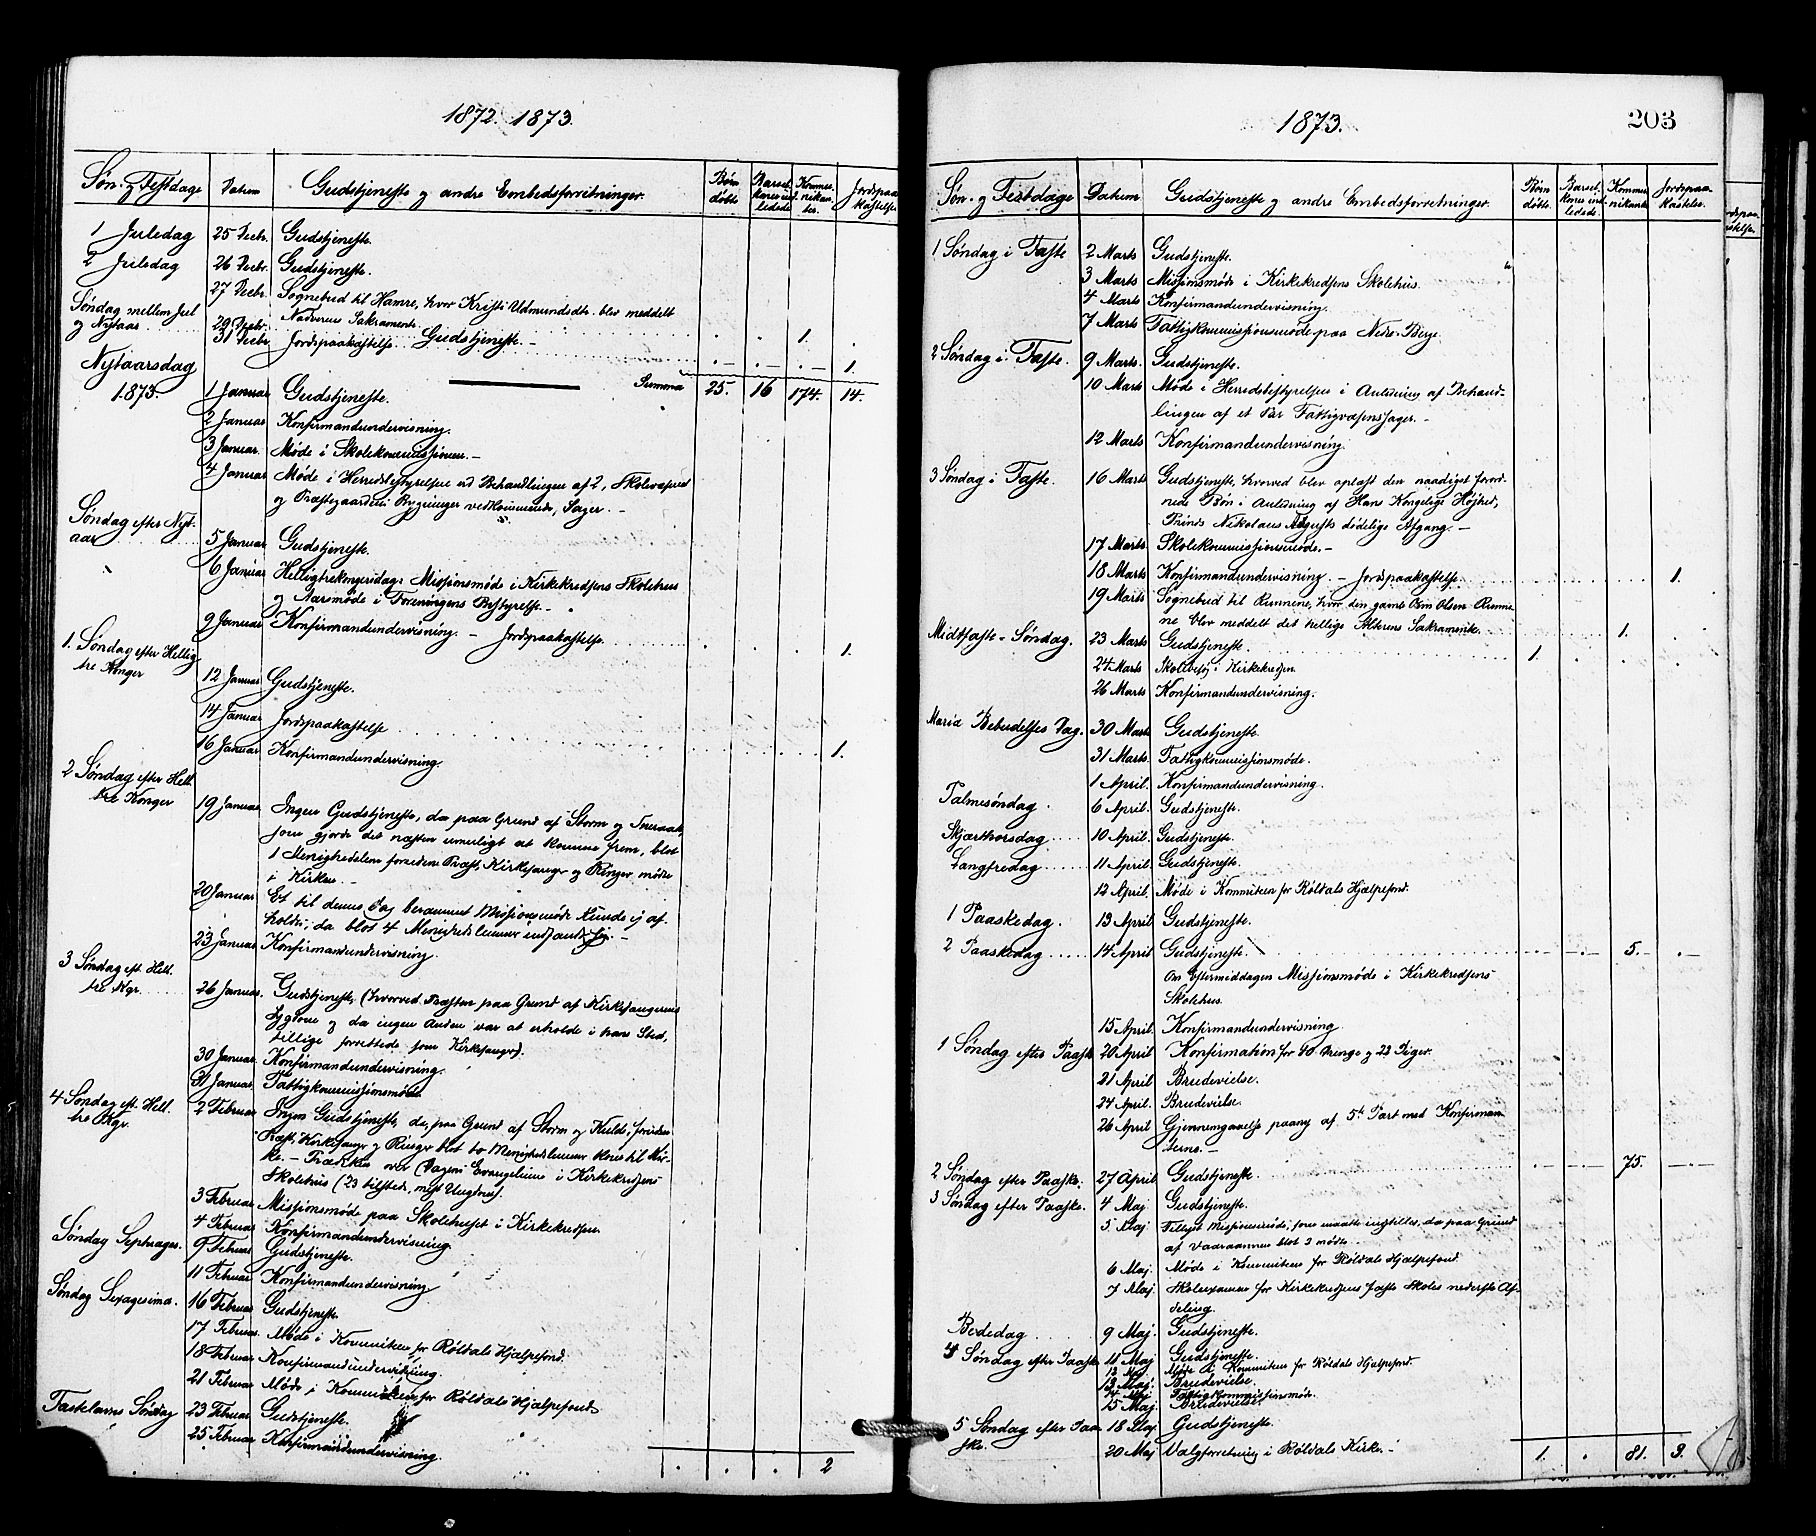 1872. 1873.
Søn- og Festdage | Datum | Gudstjeneste og andre Embedsforretninger. | Børn døbte | Barselkoner indledede | Kommunikanter. | Jordspaakastelse
1 Juledag 25 Decbr. Gudstjeneste.
2 Juledag 26 Decbr. Gudstjeneste.
27 Decbr. Sognebud til Hamre, hvor Kristi Udmundsdtr. blev meddelt
Nadverens Sakramente. . . 1. .
Søndag mellem Jul
og Nytaar 29 Decbr.
31 Decbr. Jordspaakastelse. Gudstjeneste. — . — . — 1.
Nytaarsdag Summa 25. 16 174. 14.
1873. 1 Januar Gudstjeneste.
2 Januar Konfirmandundervisning.
3 Januar. Møde i Skolekommissionen. —
4 Januar Møde i Herredsbestyrelsen ved Behandlingen af 2, Skolevæsenet
og Præstegaardens Bygninger vedkommende, Sager. —
Søndag efter Nyt-
aar 5 Januar Gudstjeneste.
6 Januar Helligtrekongersdag: Missionsmøde i Kirkekredsens Skolehus
og Aarsmøde i Foreningens Bestyrelse. —
9 Januar Konfirmandundervisning. — Jordspaakastelse. . . . 1.
1. Søndag efter Hellig
tre Konger 12 Januar Gudstjeneste.
14 Januar Jordspaakastelse
16 Januar Konfirmandundervisning. . . . 1.
2 Søndag efter Hell.
tre Konger 19 Januar Ingen Gudstjeneste, da paa Grund af Storm og Sneraak,
som gjorde det næsten umuligt at komme frem, blot
1 Menighedslem foruden Præst, Kirkesanger og Ringer mødte
i Kirken. —
20 Januar Et til denne Dag berammet Missionsmøde kunde ej af-
holdes, da blot 4 Menighedslemmer indfandt sig. —
23 Januar Konfirmandundervisning.
3 Søndag eft. Hell.
tre Kgr. 26 Januar. Gudstjeneste, (hvorved Præsten paa Grund af Kirkesangerens
Sygdom og da ingen Anden var at erholde i hans Sted,
tillige forrettede som Kirkesanger).
30 Januar Konfirmandundervisning.
31 Januar Fattigkommissionsmøde.
4 Søndag eft. Hell.
tre Kgr. 2 Februar Ingen Gudstjeneste, da, paa Grund af Storm og Kulde, foruden
Præst, Kirkesanger og Ringer blot to Menighedslemmer kom til Kir-
ke. — Prædiken over Dagens Evangelium i Kirkekredsens
Skolehus (23 tilstede, mest Ungdom).
3 Februar Missionsmøde paa Skolehuset i Kirkekredsen.
4 Februar Konfirmandundervisning
Søndag Septuages. 9 Februar Gudstjeneste.
11 Februar Konfirmandundervisning
Søndag Sexagesima. 16 Februar Gudstjeneste.
17 Februar Møde i Kommiteen for Røldals Hjælpefond.
18 Februar Konfirmandundervisning.
21 Februar Møde i Kommiteen for Røldals Hjælpefond
Fastelavns Søndag 23 Februar Gudstjeneste.
25 Februar Konfirmandundervisning.
. . . 2
1873. 203
Søn- og Festdage | Datum | Gudstjeneste og andre Embedsforretninger. | Børn døbte. | Barselkoner indledede. | Kommunikanter | Jordspaakastelse.
1 Søndag i Faste 2 Marts Gudstjeneste.
3 Marts Missionsmøde i Kirkekredsens Skolehus.
4 Marts Konfirmandundervisning.
7 Marts Fattigkommissionsmøde paa Nedre Berge.
2 Søndag i Faste. 9 Marts. Gudstjeneste.
10 Marts Møde i Herredsbestyrelsen i Anledning af Behand-
lingen af et Par Fattigvæsenssager. —
12 Marts Konfirmandundervisning.
3 Søndag i Faste. 16 Marts Gudstjeneste, hvorved blev oplæst den naadigst forord-
nede Bøn i Anledning af Hans Kongelige Højhed,
Prinds Nikolaus Augusts dødelige Afgang. —
17 Marts Skolekommissionsmøde. —
18 Marts Konfirmandundervisning. — Jordspaakastelse. 1.
19 Marts Sognebud til Runnene, hvor den gamle Osm Olsen Runne-
ne blev meddelt det hellige Alterens Sakramente. 1.
Midtfaste-Søndag. 23 Marts Gudstjeneste. 1. . . .
24 Marts Skolebesøg i Kirkekredsen.
26 Marts Konfirmandundervisning.
Maria Bebudelses Dag. 30 Marts Gudstjeneste.
31 Marts. Fattigkommissionsmøde.
1 April. Konfirmandundervisning.
Palmesøndag. 6 April. Gudstjeneste.
Skjærthorsdag 10 April. Gudstjeneste.
Langfredag 11 April. Gudstjeneste.
12 April. Møde i Kommiteen for Røldals Hjælpefond.
1 Paaskedag. 13 April Gudstjeneste.
2 Paaskedag 14 April Gudstjeneste. 5.
Om Eftermiddagen Missionsmøde i Kirkekredsens
Skolehus.
15 April. Konfirmandundervisning
1 Søndag efter Paaske 20 April Konfirmation for 10 Drenge og 22 Piger.
21 April Brudevielse.
24 April. Brudevielse.
26 April Gjennemgaaelse paany af 5te Part med Konfirman-
terne. —
2 Søndag efter Paaske. 27 April Gudstjeneste. 75.
3 Søndag efter Paaske. 4 Maj Gudstjeneste.
5 Maj Tillyst Missionsmøde, som maatte indstilles, da paa Grund
af Vaaraannen blot 2 mødte.
6 Maj. Møde i Kommiteen for Røldals Hjælpefond.
7 Maj Skoleexamen for Kirkekredsens faste Skoles nederste Af-
deling.
Bededag 9 Maj. Gudstjeneste.
4 Søndag efter Paaske 11 Maj Gudstjeneste.
12 Maj Møde i Kommiteen for Røldals Hjælpefond.
13 Maj. Brudevielse.
14 Maj Fattigkommissionsmøde.
15 Maj. Brudevielse.
5 Søndag efter Paa-
ske. 18 Maj Gudstjeneste.
20 Maj Valgforretning i Røldals Kirke. — 1. . 81. 3.